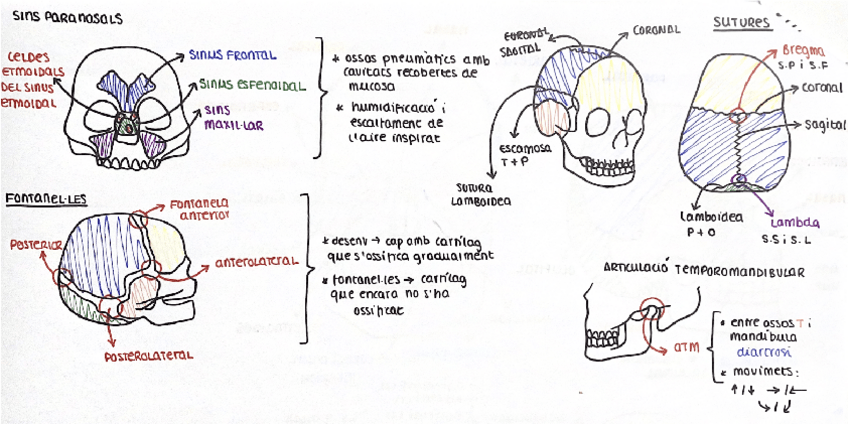 SINS PARANASALS
CELDES
ETMOIDALS
DEL SINUS
ETMOIDAL
SINUS FRONTAL
SINUS ESFENOIDAL
SINS
MAXIL·LAR
* ossos pneumàtics amb
cavitats recobertes de
mucosa
* humidificació i
escalfament de
l'aire inspirat
CORONAL
SAGITAL
CORONAL
ESCAMOSA
T+P
SUTURA
LAMBOIDEA
SUTURES
Bregma
S.P i S.F
coronal
sagital
Lamboidea
P+O
Lambda
S.S i S.L
FONTANEL·LES
FONTANELA
anterior
POSTERIOR
ANTEROLATERAL
POSTEROLATERAL
* desenv → cap amb cartílag
que s'ossifica gradualment
* fontanel·les → cartílag
que encara no s'ha
ossificat
ARTICULACIÓ TEMPOROMANDIBULAR
ATM
• entre ossos T i
mandíbula
diartrosi
* movimets:
↑/↓ →/←